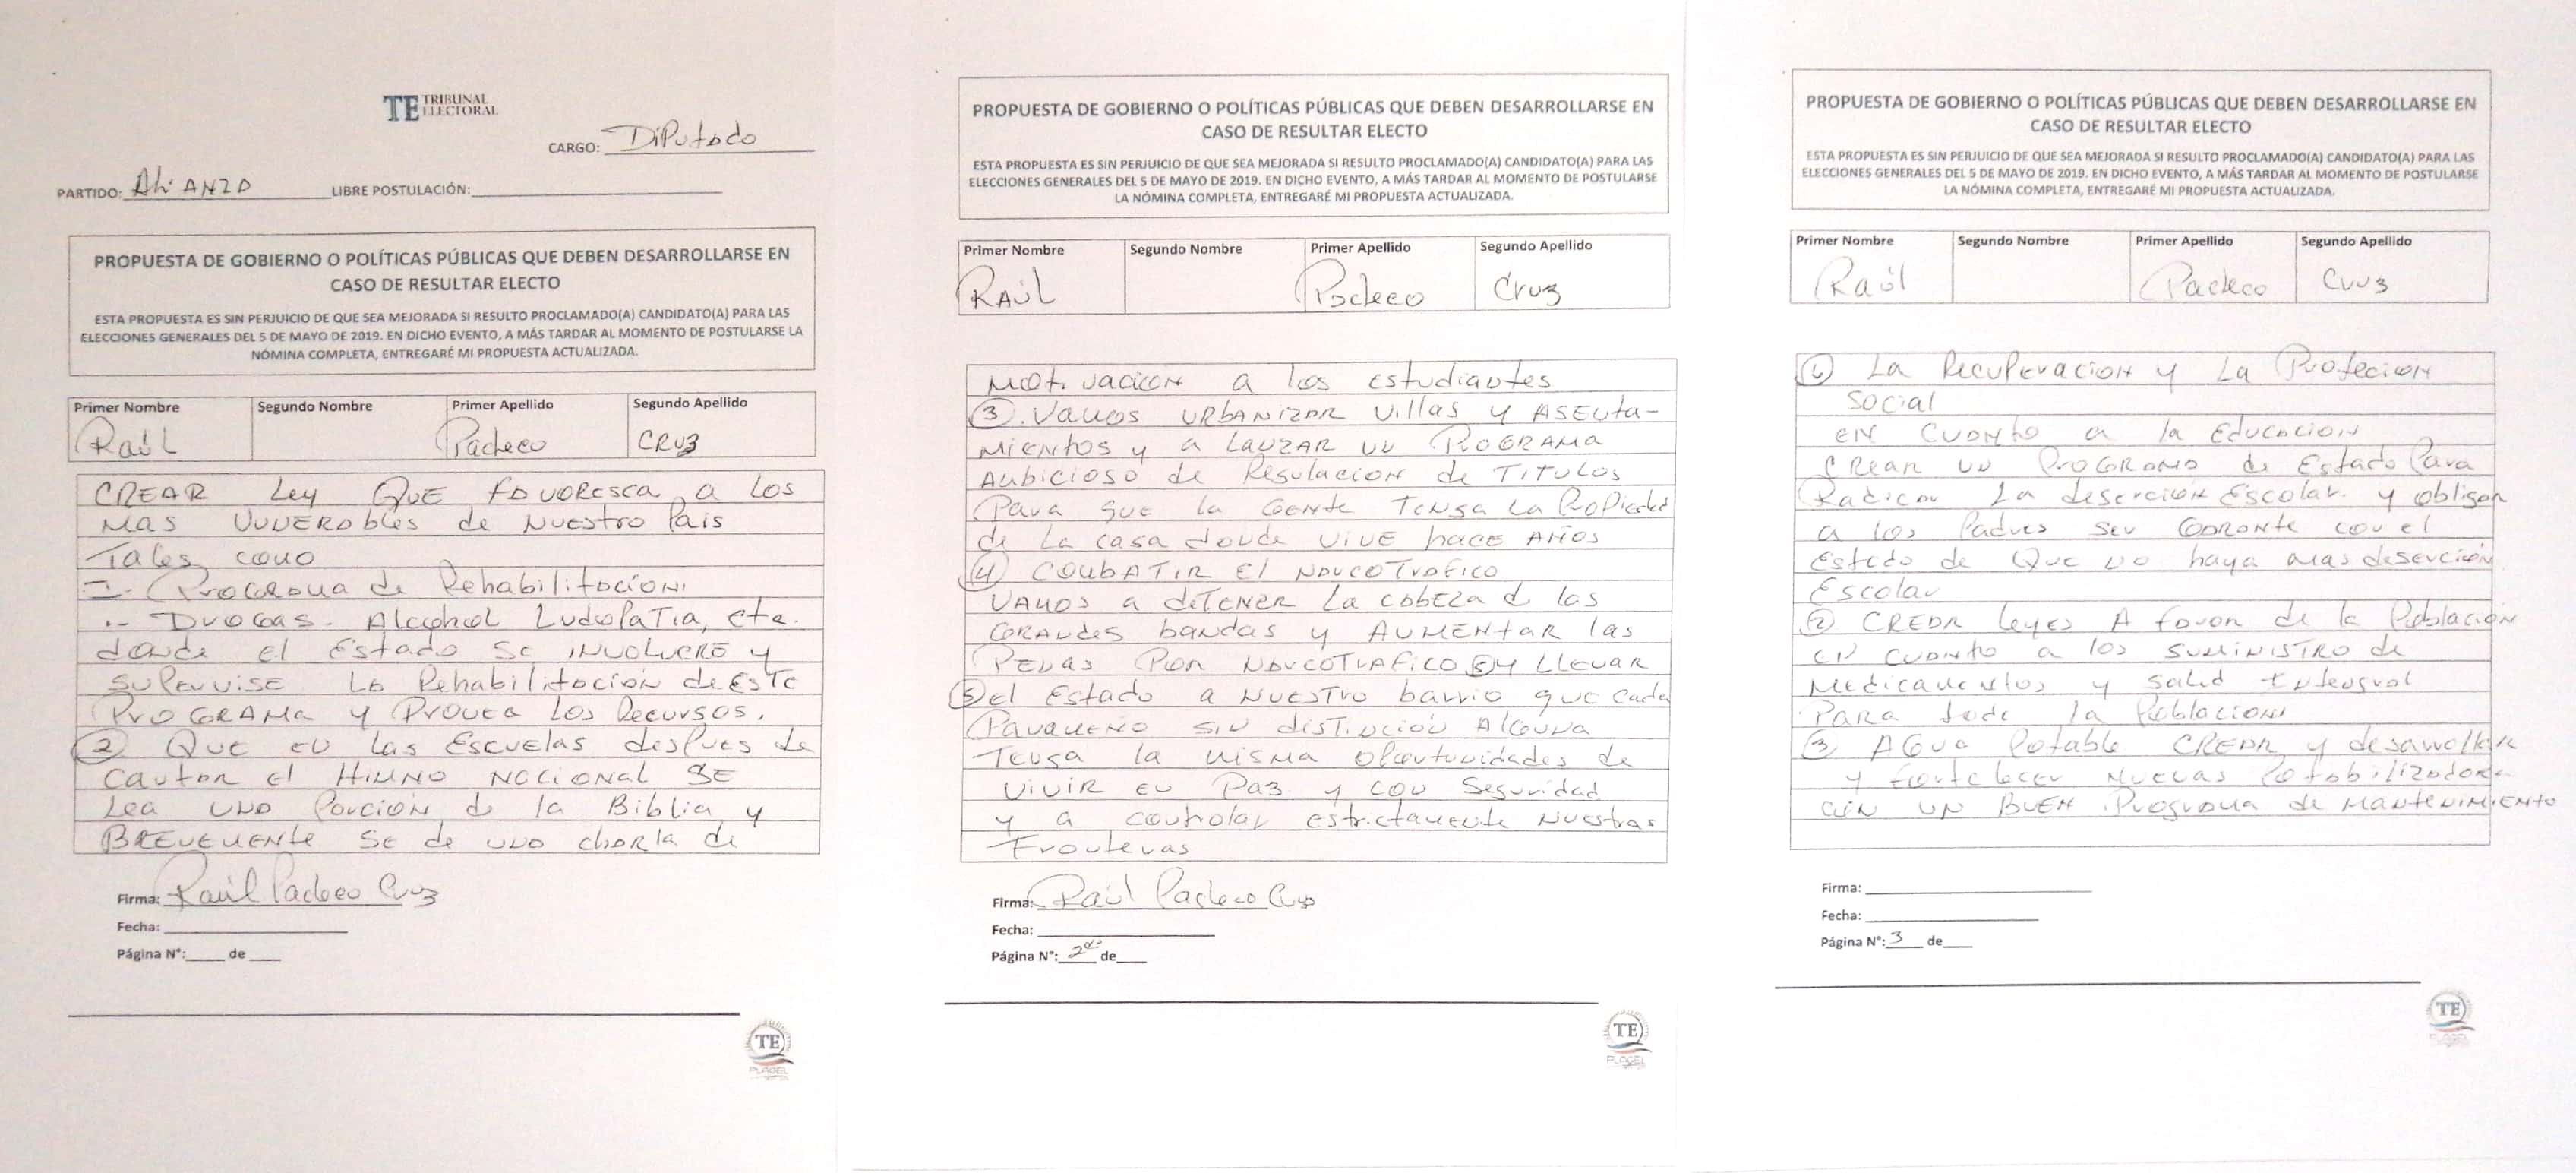 TE TRIBUNAL ELECTORAL
CARGO: Diputado
PARTIDO: Alianza LIBRE POSTULACIÓN:
PROPUESTA DE GOBIERNO O POLÍTICAS PÚBLICAS QUE DEBEN DESARROLLARSE EN
CASO DE RESULTAR ELECTO
ESTA PROPUESTA ES SIN PERJUICIO DE QUE SEA MEJORADA SI RESULTO PROCLAMADO(A) CANDIDATO(A) PARA LAS
ELECCIONES GENERALES DEL 5 DE MAYO DE 2019. EN DICHO EVENTO, A MÁS TARDAR AL MOMENTO DE POSTULARSE LA
NÓMINA COMPLETA, ENTREGARÉ MI PROPUESTA ACTUALIZADA.
Primer Nombre Segundo Nombre Primer Apellido Segundo Apellido
Raúl Pacheco CRUZ
CREAR Ley QUE favoresca a los
mas vunerables de nuestro Pais
Tales como
1- Programa de Rehabilitación
.- Drogas. Alcohol Ludopatia, etc.
donde el Estado se involucre y
supervise la Rehabilitación de este
PROGRAMA y Provea los Recursos.
② Que en las Escuelas despues de
cantar el Himno Nacional se
lea una Porción de la Biblia y
BREVEMENTE se de una charla de
Firma: Raúl Pacheco Cruz
Fecha:
Página N°: de
TE
PLAGEL
PROPUESTA DE GOBIERNO O POLÍTICAS PÚBLICAS QUE DEBEN DESARROLLARSE EN
CASO DE RESULTAR ELECTO
ESTA PROPUESTA ES SIN PERJUICIO DE QUE SEA MEJORADA SI RESULTO PROCLAMADO(A) CANDIDATO(A) PARA LAS
ELECCIONES GENERALES DEL 5 DE MAYO DE 2019. EN DICHO EVENTO, A MÁS TARDAR AL MOMENTO DE POSTULARSE
LA NÓMINA COMPLETA, ENTREGARÉ MI PROPUESTA ACTUALIZADA.
Primer Nombre Segundo Nombre Primer Apellido Segundo Apellido
RAÚL Pacheco Cruz
Motivación a los estudiantes
③. Vamos URBANIZAR Villas y Asenta-
mientos y a lanzar un PROGRAMA
Ambicioso de Regulacion de TITULOS
Para que la Gente Tenga la Propiedad
de la casa donde vive hace AÑOS
④ COMBATIR El Narcotrafico
Vamos a detener la cabeza d las
GRANDES bandas y AUMENTAR las
Penas Por Narcotrafico y LLEVAR
⑤ el Estado a NUESTRO barrio que cada
Panameño sin distinción Alguna
Tenga la misma oportunidades de
vivir en Paz y con Seguridad
y a controlar estrictamente Nuestras
Fronteras
Firma: Raúl Pacheco Cruz
Fecha:
Página N°: 2da de
TE
PLAGEL
PROPUESTA DE GOBIERNO O POLÍTICAS PÚBLICAS QUE DEBEN DESARROLLARSE EN
CASO DE RESULTAR ELECTO
ESTA PROPUESTA ES SIN PERJUICIO DE QUE SEA MEJORADA SI RESULTO PROCLAMADO(A) CANDIDATO(A) PARA LAS
ELECCIONES GENERALES DEL 5 DE MAYO DE 2019. EN DICHO EVENTO, A MÁS TARDAR AL MOMENTO DE POSTULARSE
LA NÓMINA COMPLETA, ENTREGARÉ MI PROPUESTA ACTUALIZADA.
Primer Nombre Segundo Nombre Primer Apellido Segundo Apellido
Raúl Pacheco Cruz
① La Recuperacion y La Protecion
Social
EN cuanto a la Educacion
Crear un Programa de Estado Para
Radicar La deserción Escolar. y obligar
a los Padres ser Garante con el
Estado de Que no haya mas deserción
Escolar
② CREAR leyes A favor de la Población
en cuanto a los suministro de
Medicamentos y salud Integral
Para toda la Poblacion
③ Agua Potable CREAR y desarrollar
y fortalecer nuevas Potabilizadora
con un BUEN Programa de mantenimiento
Firma:
Fecha:
Página N°: 3 de
TE